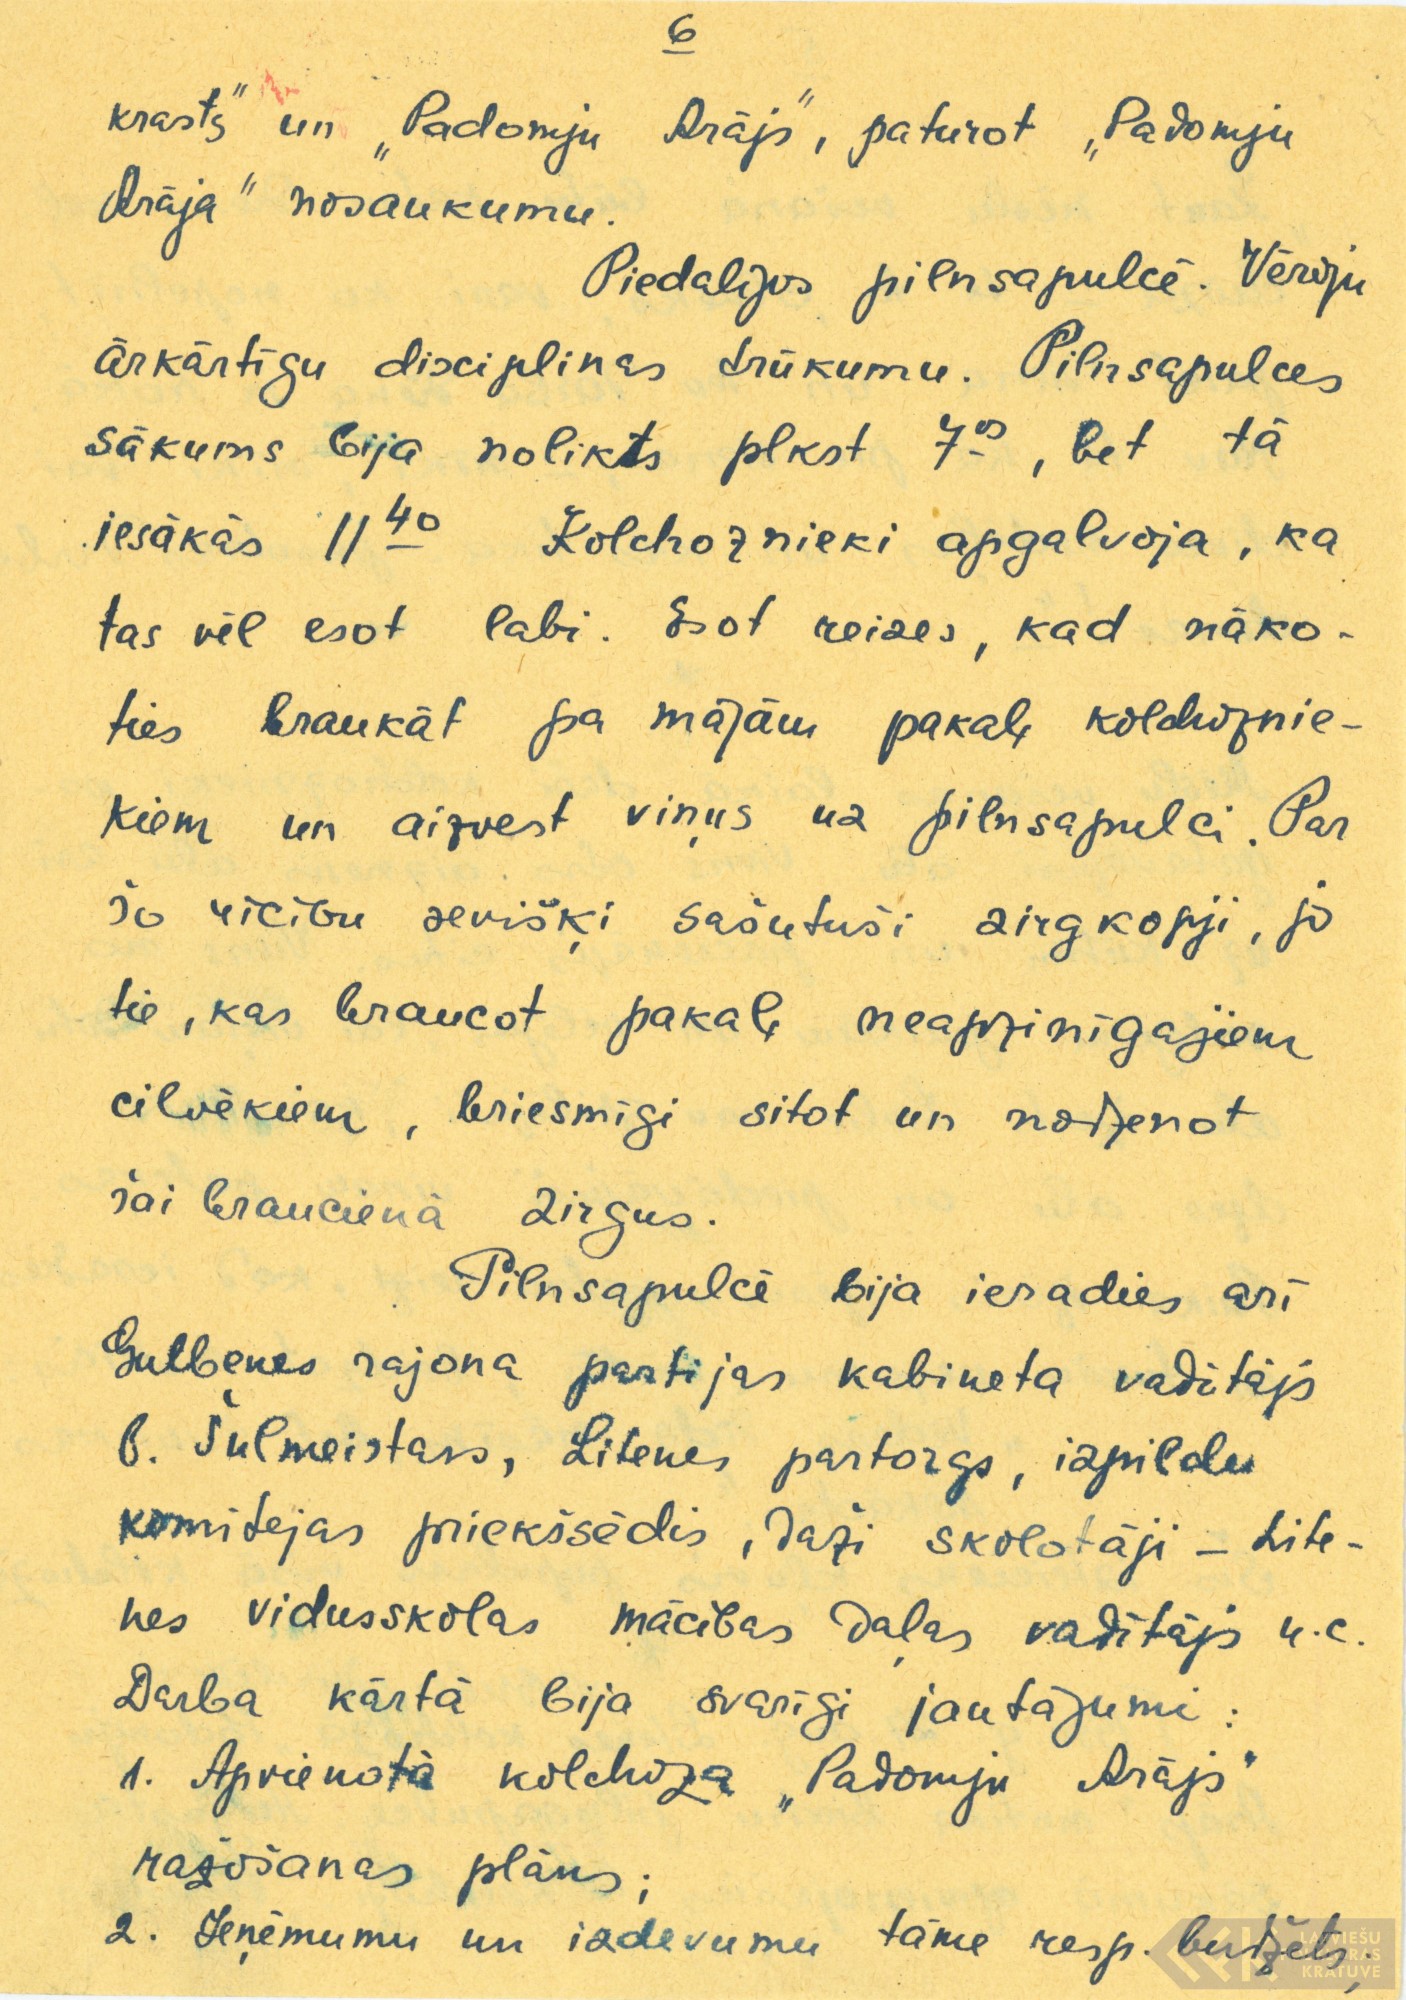 6
krasts" un „Padomju Arājs", paturot „Padomju
Arāja" nosaukumu.
Piedalijos pilnsapulcē. Vēroju
ārkārtīgu disciplinas trūkumu. Pilnsapulces
sākums bija nolikts plkst 7⁰⁰, bet tā
iesākās 11⁴⁰ Kolchoznieki apgalvoja, ka
tas vēl esot labi. Esot reizes, kad nāko-
ties braukāt pa mājām pakaļ kolchoznie-
kiem un aizvest viņus uz pilnsapulci. Par
šo rīcību sevišķi sašutuši zirgkopji, jo
tie, kas braucot pakaļ neapzinīgajiem
cilvēkiem, briesmīgi sitot un nodzenot
šai braucienā zirgus.
Pilnsapulcē bija ieradies arī
Gulbenes rajona partijas kabineta vadītājs
b. Šulmeistars, Litenes partorgs, izpildu
komitejas priekšsēdis, daži skolotāji – Lite-
nes vidusskolas mācības daļas vadītājs u.c.
Darba kārtā bija svarīgi jautājumi:
1. Apvienotā kolchoza „Padomju Arājs"
ražošanas plāns;
2. Ieņēmumu un izdevumu tāme resp. budžets;
LATVIEŠU
FOLKLORAS
KRĀTUVE